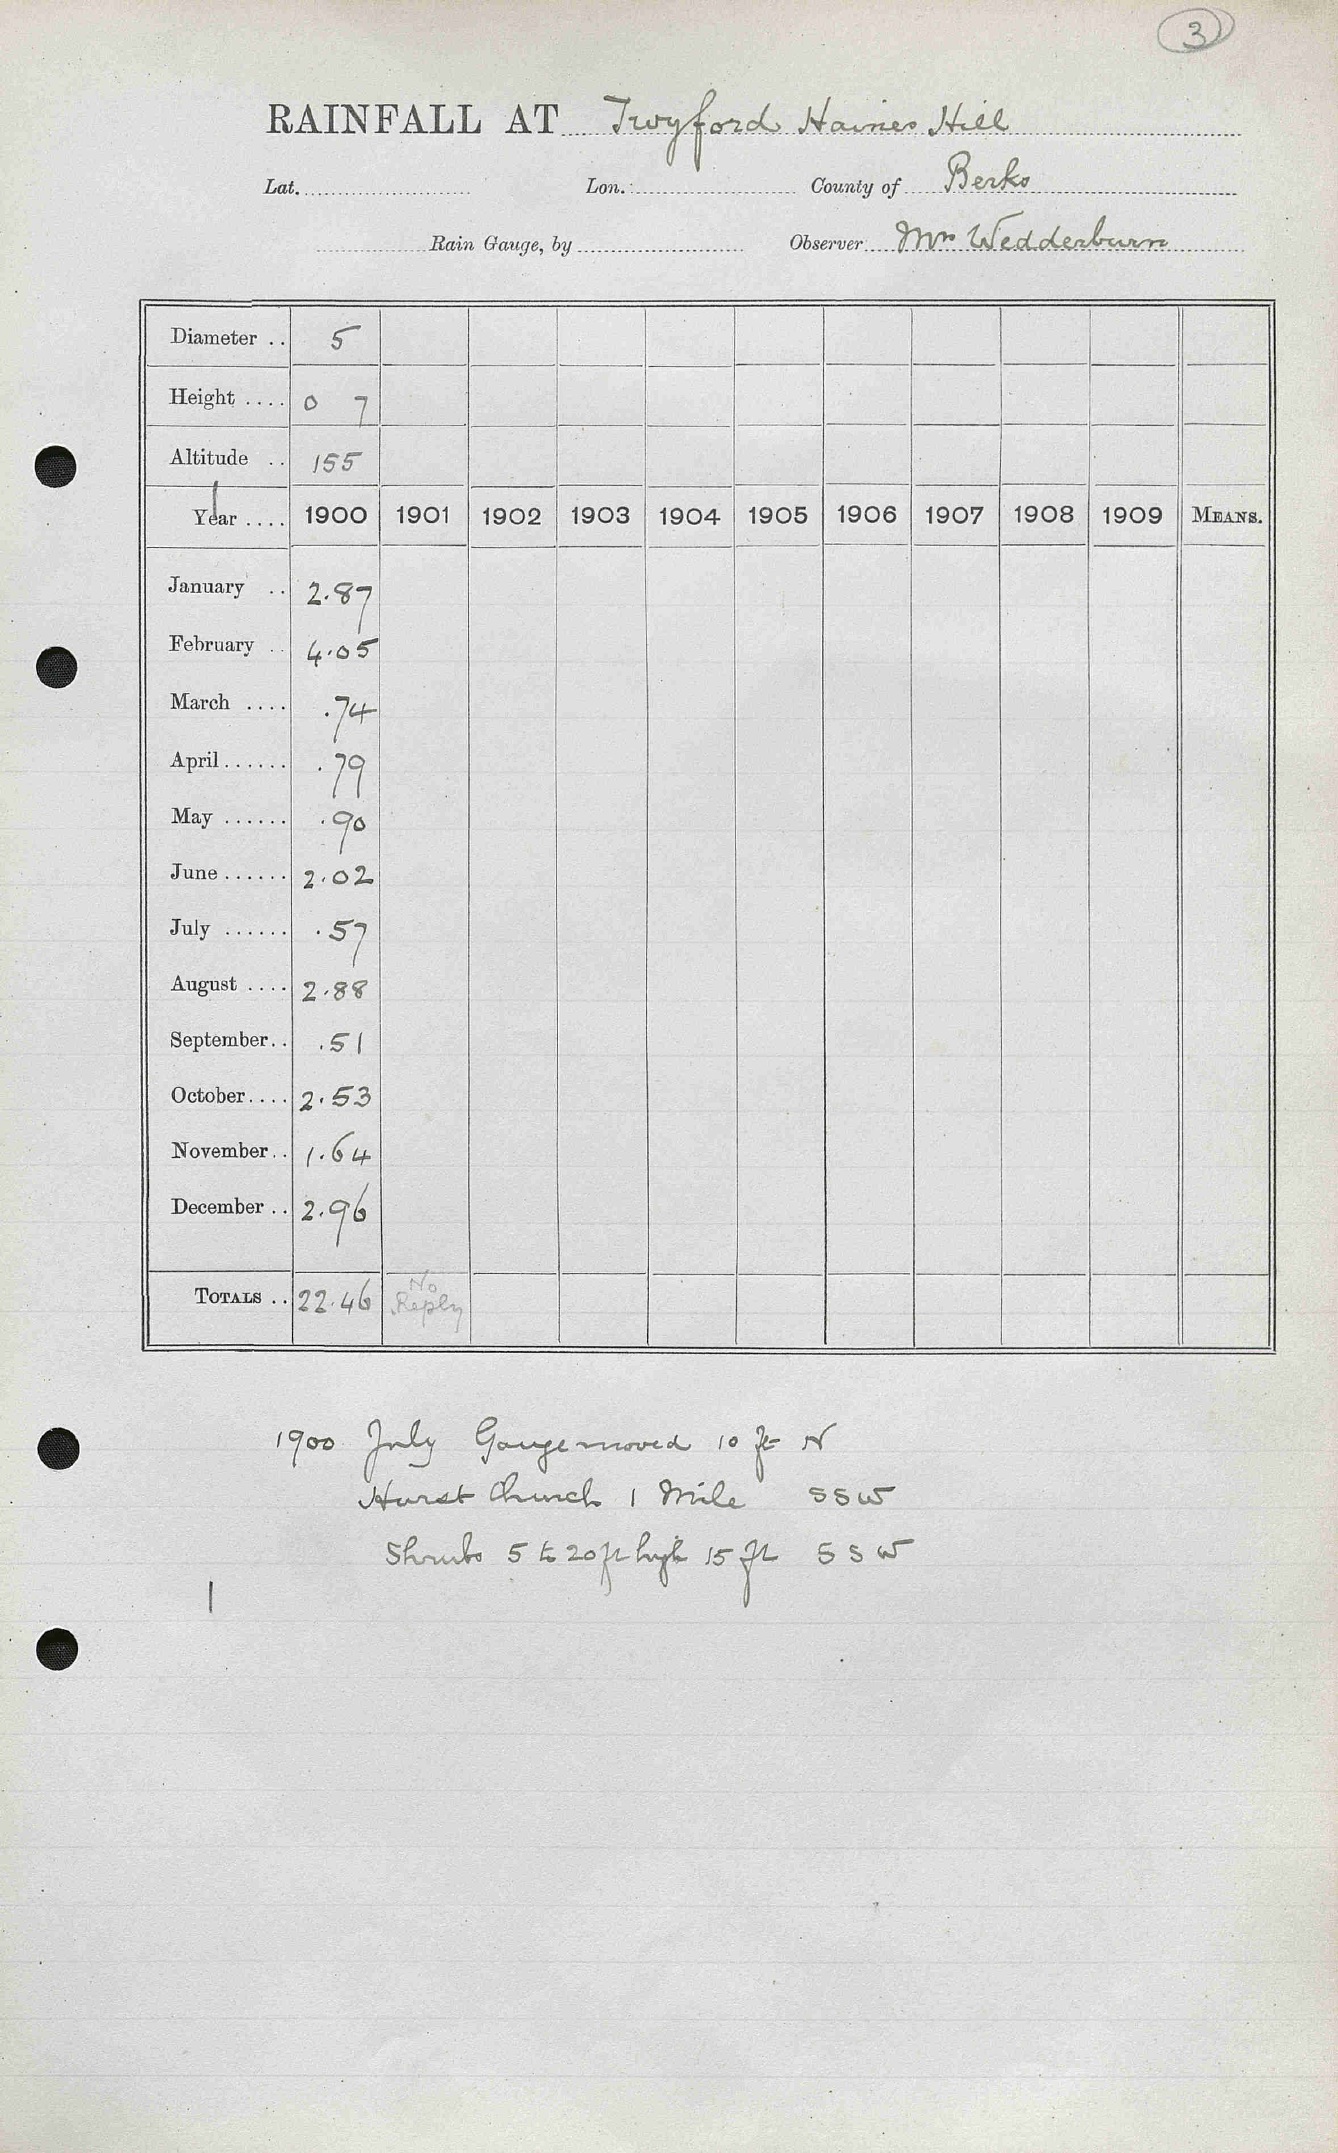 3
RAINFALL AT Twyford Haines Hill
Lat. Lon. County of Berks
Rain Gauge, by Observer Mrs Wedderburn
Diameter .. 5
Height .... 0 7
Altitude .. 155
Year .... 1900 1901 1902 1903 1904 1905 1906 1907 1908 1909 MEANS.
January .. 2.87
February .. 4.05
March .... .74
April ...... .79
May ...... .90
June ...... 2.02
July ...... .57
August .... 2.88
September .. .51
October .... 2.53
November .. 1.64
December .. 2.96
TOTALS .. 22.46 No Reply
1900 July Gauge moved 10 ft N
Hurst Church 1 Mile SSW
Shrubs 5 to 20 ft high 15 ft SSW